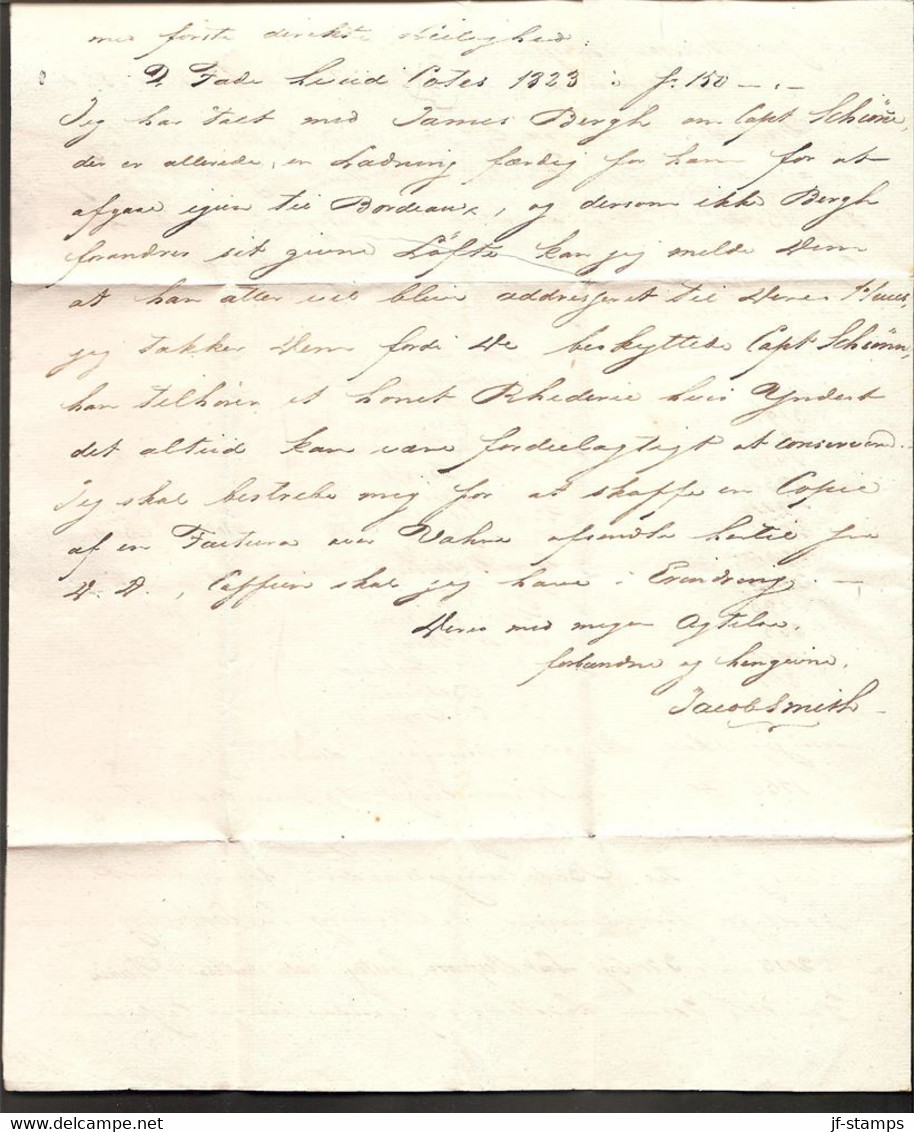 med første direkte Leilighed.
2 Fade hviid Cotes 1823 à f. 150 —.—
Jeg har talt med James Bergh om Capt Schiønn,
der er allerede en Ladning færdig for ham for at
afgaae igien til Bordeaux, og dersom ikke Bergh
forandrer sit givne Løfte kan jeg melde Dem
at han atter vil blive addresseret til Deres Huus,
jeg takker Dem fordi De beskyttede Capt Schiønn,
han tilhører et honet Rhederie hvis Yndest
det altiid kan være fordeelagtigt at conservere.
Jeg skal bestrebe mig for at skaffe en Copie
af en Factura over afsendte hertil fra
D. D., Caffeen skal jeg have i Erindring. —
Deres med megen Agtelse,
forbundne og hengivne,
Jacob Smith
jf-stamps